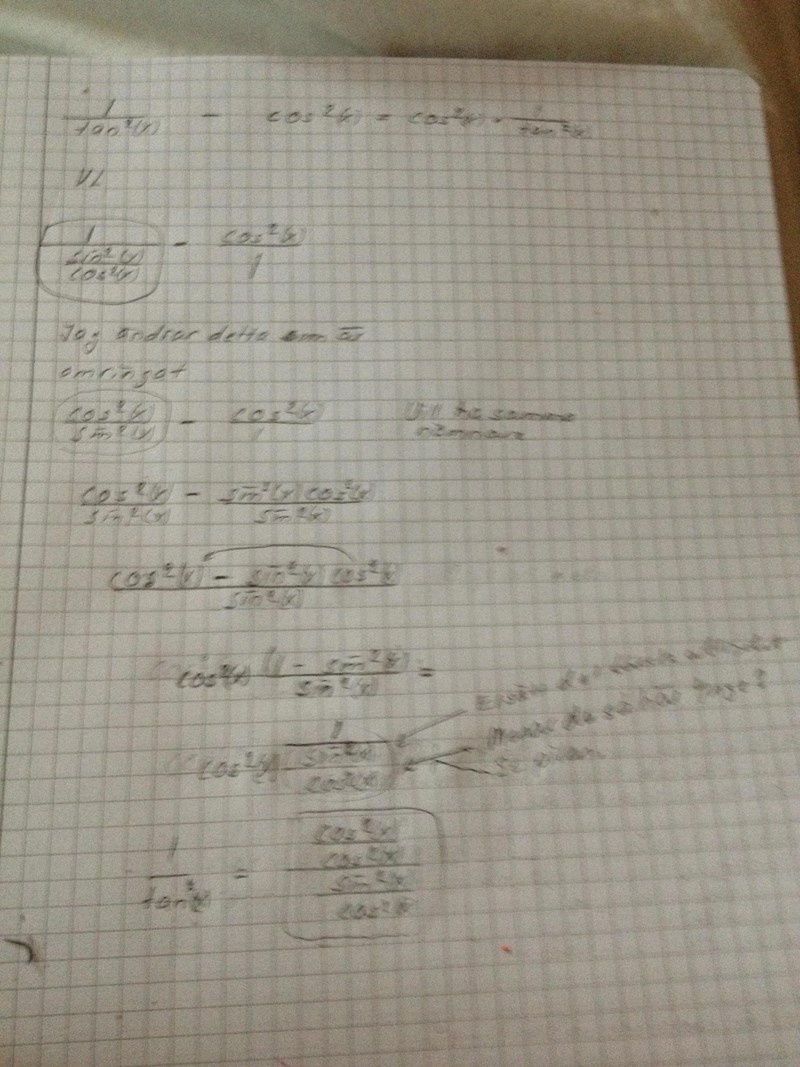 1/tan²(x) - cos²(x) = cos²(x) · 1/tan²(x)
VL
1/(sin²(x)/cos²(x)) - cos²(x)/1
Jag ändrar detta är
omringat
cos²(x)/sin²(x) - cos²(x)/1 Vill ha samma
nämnare
cos²(x)/sin²(x) - sin²(x)cos²(x)/sin²(x)
(cos²(x) - sin²(x) cos²(x))/sin²(x)
cos²(x) (1 - sin²(x))/sin²(x) =
cos²(x) 1/(sin²(x)/cos²(x))
1/tan²(x) = (cos²(x)/cos²(x))/(sin²(x)/cos²(x))